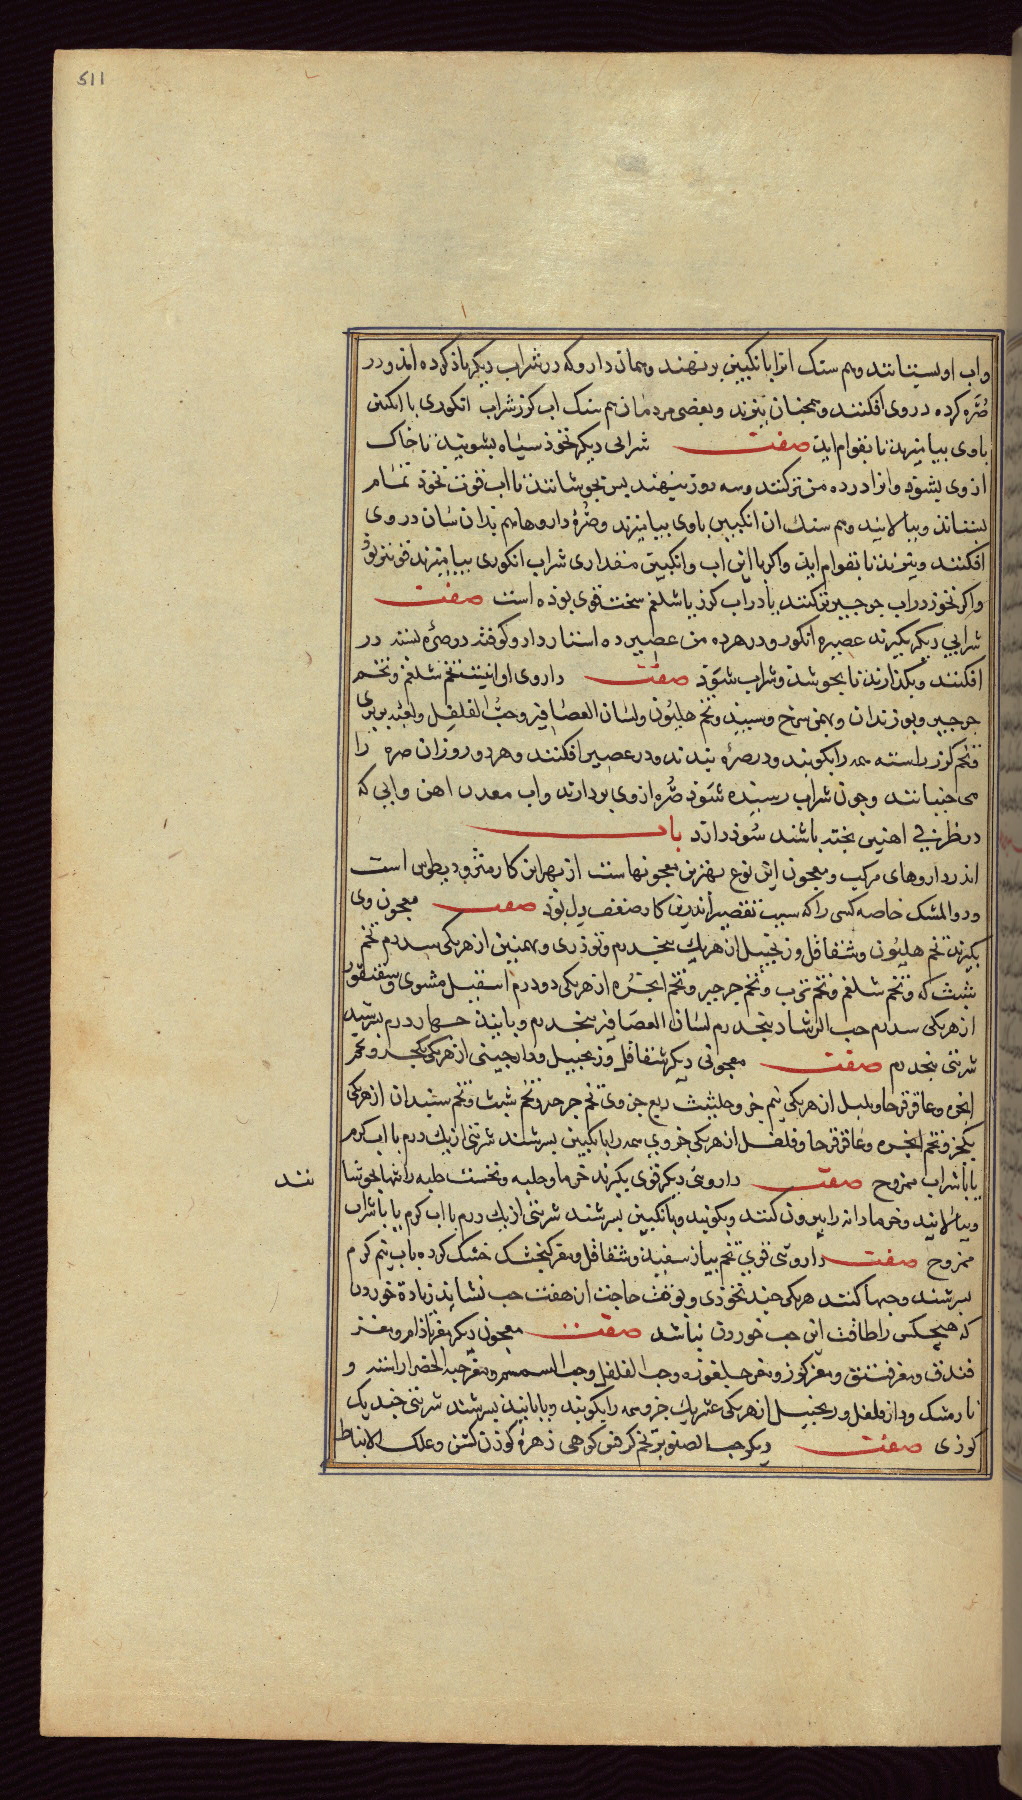 511
واب او بستانند وهم سنک انرا بانکبین برنهند وهمان دارو که در شراب دیکر یاذ کرده امد در
صُرّه کرده در وی افکنند وهمجنان ببزند وبعضی مردمان هم سنک اب کزر شراب انکوری با انکبین
باوی بیامیزند تا بقوام اید صفت شرابی دیکر نخوذ سیاه بشویند تا خاک
از وی بشوذ وانرا در ده من تر کنند وسه روز بنهند پس بجوشانند تا اب قوت نخوذ تمام
بستاند وبپالایند وهم سنک ان انکبین باوی بیامیزند وصُرهٔ داروها هم بدان سان در وی
افکنند وبپزند تا بقوام اید واکر با این اب وانکبین مقداری شراب انکوری بیامیزند قوی‌تر بوذ
واکر نخوذ در اب جرجیر تر کنند یا در اب کزر یا شلغم سخت قوی بوذه است صفت
شرابی دیکر بکیرند عصیر انکور ودر هر ده من عصیر ده استار دارو کوفته در صرّه بسته در
افکنند وبکذارند تا بجوشد وشراب شوَد صفت داروی او اینست تخم شلغم وتخم
جرجیر وبوزندان وبهمن سرخ وسپید وتخم هلیون ولسان العصافیر وحبّ الفلفل ولعبه بربری
وتخم کزر راسته همه را بکوبند ودر صرّه بندند ودر عصیر افکنند وهر دو روز ان صره را
می جنبانند وجون شراب رسیده شوَذ صُره از وی بردارند واب معدن اهن وابی که
در ظرفی اهنین پخته باشند سُوذ دارد باب
اندر داروهای مرکب ومعجون این نوع بهترین معجونهاست از بهر این کار مثرودیطوس است
ودوالمسک خاصه کسی را که سبب تقصیر اندرین کار ضعف دل بوَد صفت معجون وی
بکیرند تخم هلیون وشقاقل وزنجبیل از هر یک پنجدرم وتوذری وبهمنین از هر یکی سه درم تخم
شبث که وتخم شلغم وتخم ترب وتخم جرجیر وتخم انجره از هر یکی دو درم اسقیل مشوی وسقنقور
از هر یکی سه درم حب الرشاد پنجدرم لسان العصافیر پنجدرم وبا پانیذ جهار درم بسرشند
شربتی پنجدرم صفت معجونی دیکر شقاقل وزنجبیل ودارجینی از هر یکی یکجزو تخم
انجره وعاقرقرحا وپلپل از هر یکی نیم جزو وحلتیث ربع جزوی تخم جرجیر وتخم شبث وتخم سپندان از هر یکی
یکجز وتخم انجره وعاقرقرحا وفلفل از هر یکی جزوی همه را با انکبین بسرشند شربتی از یک درم با اب کرم
یا با شراب ممزوج صفت داروئی دیکر قوی بکیرند خرما وحلبه ونخست حلبه را تنها بجوشا
نند
وبپالایند وخرما دانه را بیرون کنند وبکوبند وبا انکبین بسرشند شربتی از یک درم با اب کرم یا با شراب
ممزوج صفت داروئی قوی تخم پیاز سفید وشقاقل ومغز کنجشک خشک کرده باب نیم کرم
بسرشند وحبها کنند هر یکی جند نخوذی وبوقت حاجت از هفت حب نشاید زیادة خوردن
که هیچکس را طاقت این حب خوردن نباشد صفت معجون دیکر مغز باذام ومغز
فندق ومغز فستق ومغز کوز ومغز جلغوزه وحب الفلفل وحب السمسم ومغز حبه الخضرا راسته و
نارمشک ودار فلفل وزنجبیل از هر یکی عشر یک جزو همه را بکوبند وبا پانیذ بسرشند شربتی جند یک
کوزی صفت دیکر حب الصنوبر تخم کرفس کوهی زهرهٔ کوزن کشن وعلک الانباط